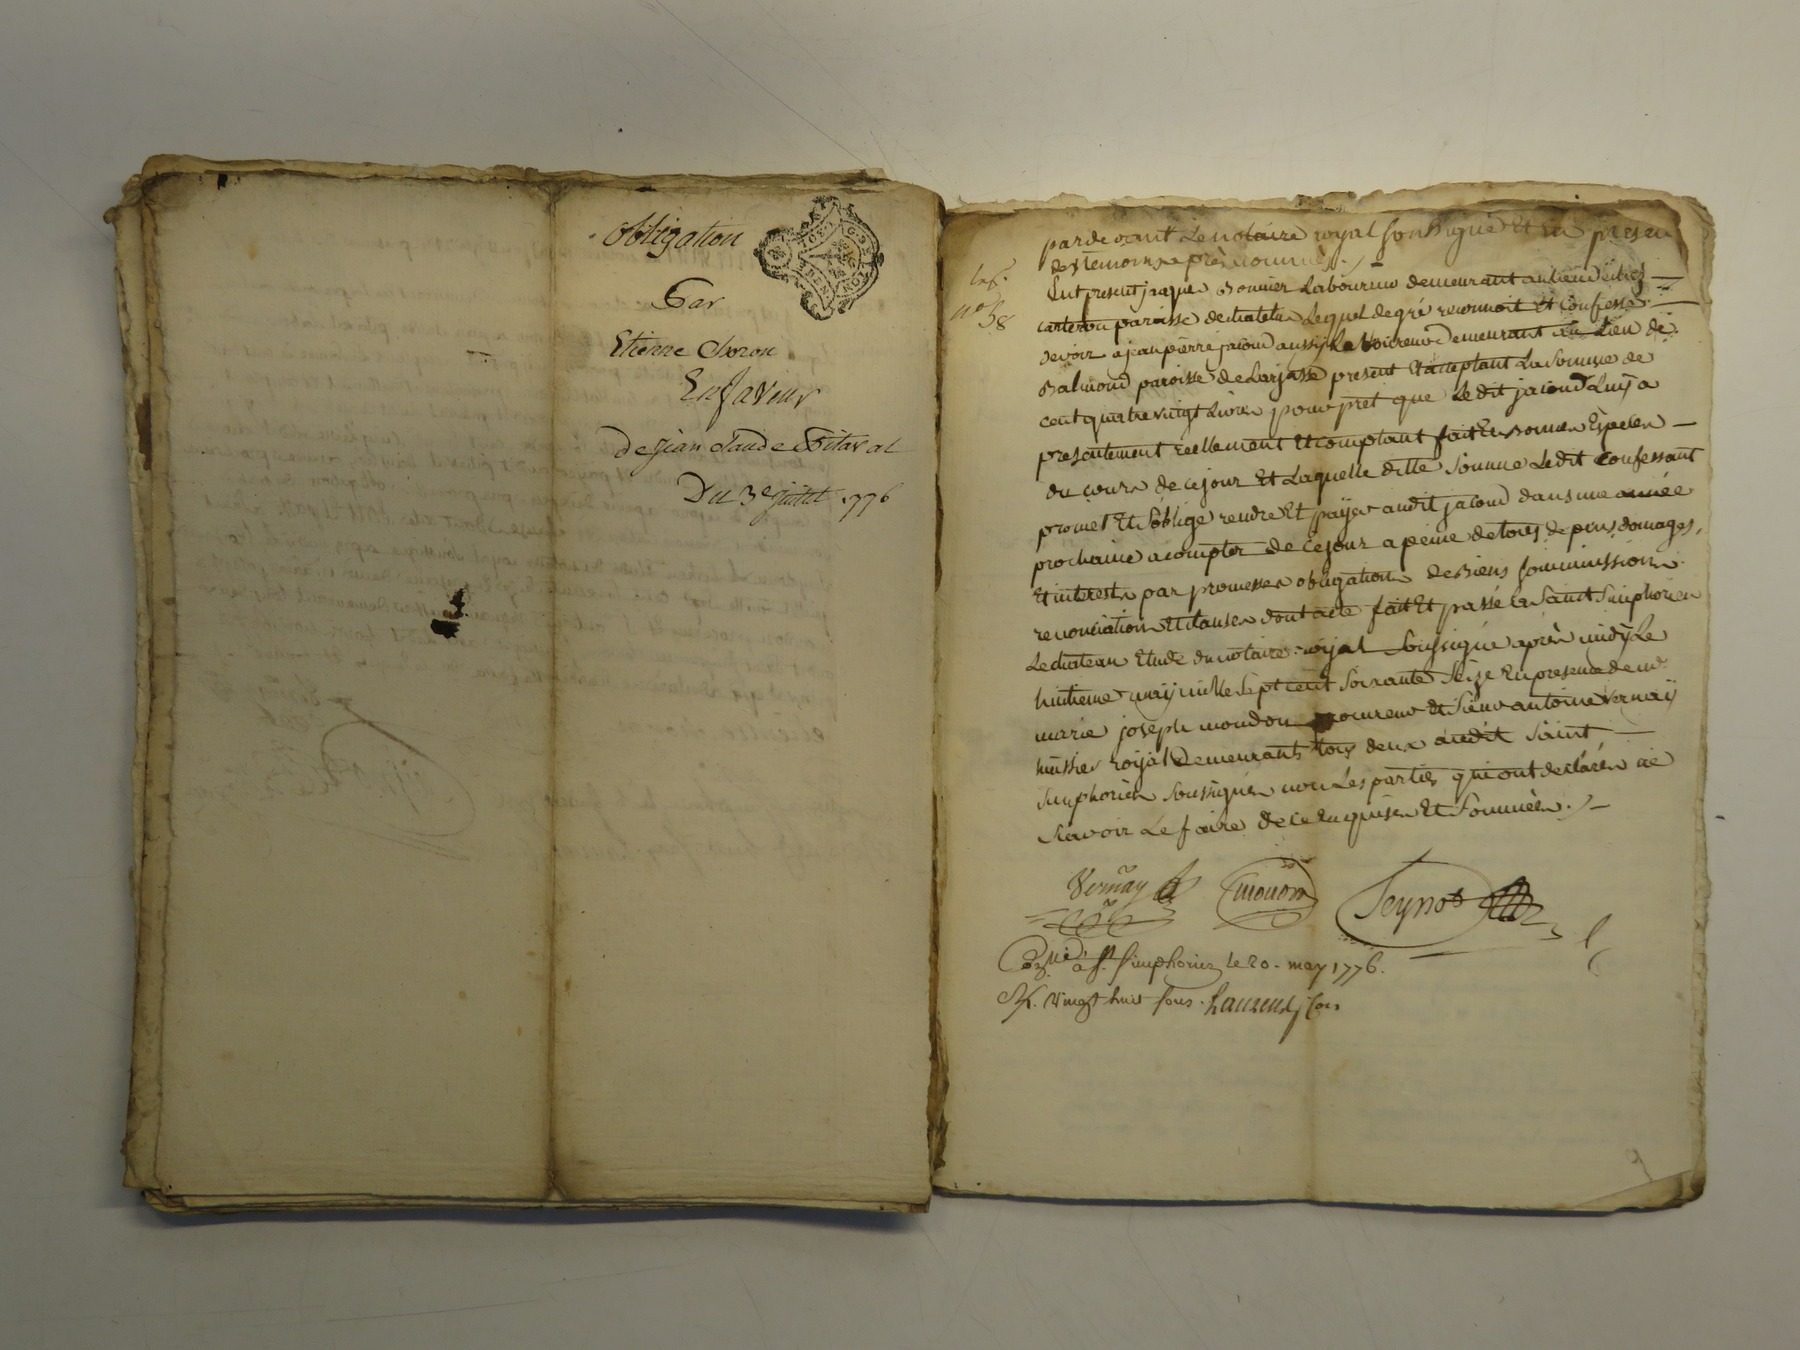 obligation
Par
Etienne Choron
En faveur
De jean Claude Pitaval
Du 3e juillet 1776
par devant Le notaire royal soussigné Et en presen
des temoins après nommés ./.
n° 58
fut present jaque Bonnier Laboureur demeurant au lieu
paroisse de Lequel de gré reconnoit Et Confesse
devoir a jean pierre jacoud aussy demeurant au Lieu de
Balmond paroisse de Larjasse present Et acceptant La somme de
cent quatre vingt Livres pour pret que Le dit jacoud Luy a
presentement réellement Et comptant fait En bonnes Espèces
du cours de ce jour Et Laquelle ditte somme Le dit Confessant
promet Et s'oblige rendre Et payer audit jacoud dans une année
prochaine a compter de ce jour a peine de tous depens, domages,
Et interests par promesses obligations de Biens soummissions
renonciations Et clauses dont acte fait Et passé à Saint Simphorien
Le chateau Etude du notaire royal soussigné après midy Le
huitieme may mille sept cent soixante seize En presence de mr
marie joseph mondon procureur Et Sieur antoine vernay
huissier royal Demeurants tous deux audit saint
simphorien soussignés non Les parties qui ont déclarés ne
scavoir Le faire de ce Enquises Et sommées ./.
Vernay
mondon
à St Simphorien le 20. may 1776.
R. Vingt huit sous.
9